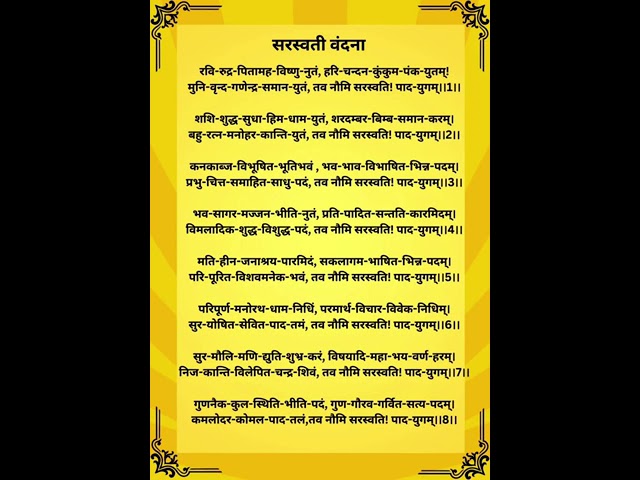 सरस्वती वंदना
रवि-रुद्र-पितामह-विष्णु-नुतं, हरि-चन्दन-कुंकुम-पंक-युतम्!
मुनि-वृन्द-गणेन्द्र-समान-युतं, तव नौमि सरस्वति! पाद-युगम्।।1।।
शशि-शुद्ध-सुधा-हिम-धाम-युतं, शरदम्बर-बिम्ब-समान-करम्।
बहु-रत्न-मनोहर-कान्ति-युतं, तव नौमि सरस्वति! पाद-युगम्।।2।।
कनकाब्ज-विभूषित-भूतिभवं , भव-भाव-विभाषित-भिन्न-पदम्।
प्रभु-चित्त-समाहित-साधु-पदं, तव नौमि सरस्वति! पाद-युगम्।।3।।
भव-सागर-मज्जन-भीति-नुतं, प्रति-पादित-सन्तति-कारमिदम्।
विमलादिक-शुद्ध-विशुद्ध-पदं, तव नौमि सरस्वति! पाद-युगम्।।4।।
मति-हीन-जनाश्रय-पारमिदं, सकलागम-भाषित-भिन्न-पदम्।
परि-पूरित-विशवमनेक-भवं, तव नौमि सरस्वति! पाद-युगम्।।5।।
परिपूर्ण-मनोरथ-धाम-निधिं, परमार्थ-विचार-विवेक-निधिम्।
सुर-योषित-सेवित-पाद-तमं, तव नौमि सरस्वति! पाद-युगम्।।6।।
सुर-मौलि-मणि-द्युति-शुभ्र-करं, विषयादि-महा-भय-वर्ण-हरम्।
निज-कान्ति-विलेपित-चन्द्र-शिवं, तव नौमि सरस्वति! पाद-युगम्।।7।।
गुणनैक-कुल-स्थिति-भीति-पदं, गुण-गौरव-गर्वित-सत्य-पदम्।
कमलोदर-कोमल-पाद-तलं,तव नौमि सरस्वति! पाद-युगम्।।8।।